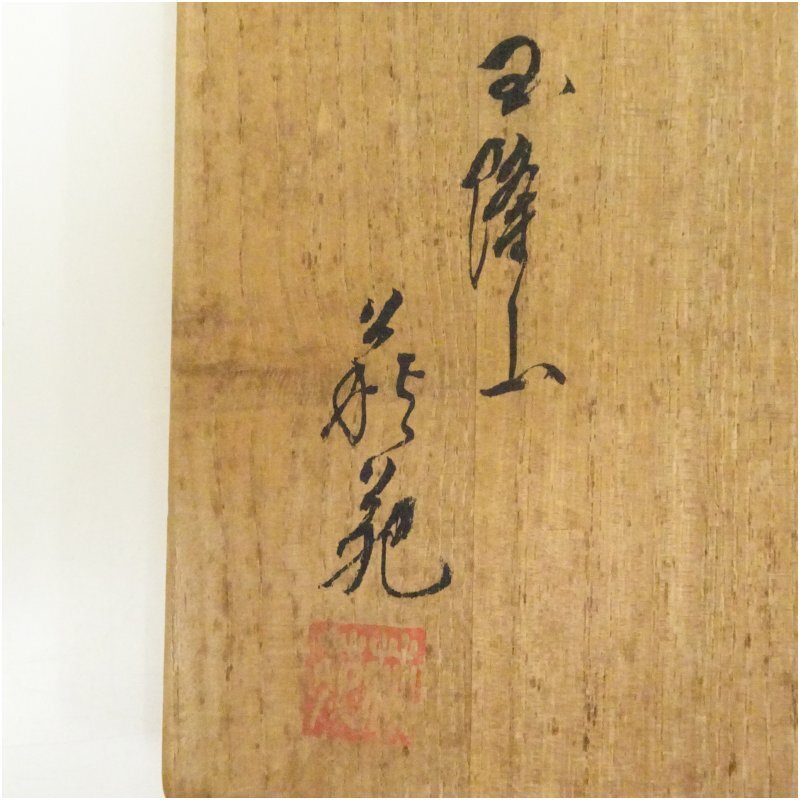 玉隆山
萩苑